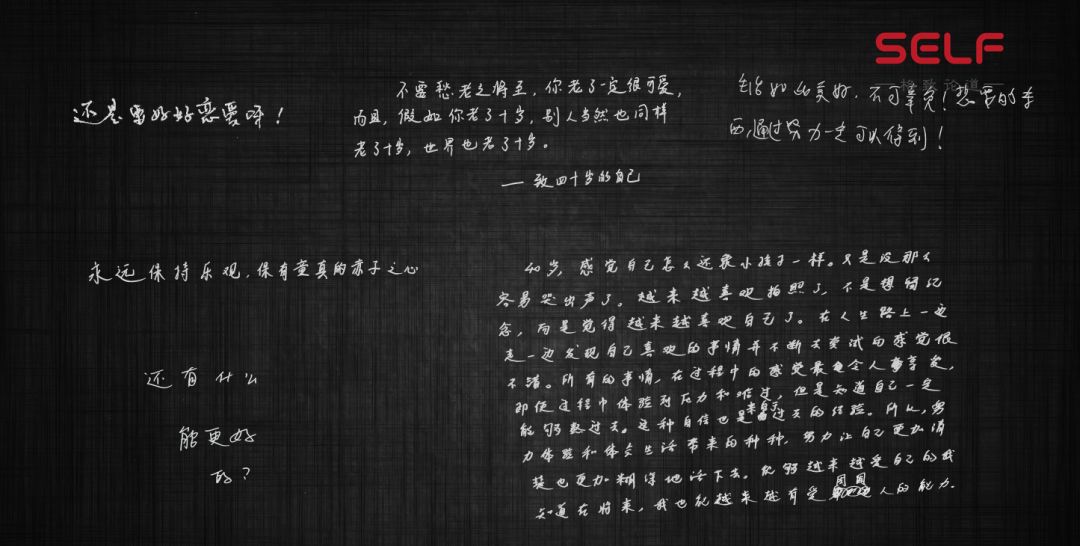 SELF
格致论道
还是要好好恋爱呀!
不要愁老之将至,你老了一定很可爱,
而且,假如你老了十岁,别人当然也同样
老了十岁,世界也老了十岁。
— 致四十岁的自己
生活如此美好,不可辜负!想要的东
西,通过努力一定可以得到!
永远保持乐观,保有童真的赤子之心
还有什么
能更好
的?
40岁,感觉自己怎么还像小孩子一样。只是没那么
容易哭出声了。越来越喜欢拍照了,不是想留纪
念,而是觉得越来越喜欢自己了。在人生路上一边
走一边发现自己喜欢的事情并不断去尝试的感觉很
不错。所有的事情,在过程中的感觉最令人享受,
即使过程中体验到压力和难过,但是知道自己一定
能够熬过去。这种自信也是来自于过去的经验。所以,努
力体验和体会生活带来的种种,努力让自己更加清
楚也更加糊涂地活下去。能够越来越爱自己的我
知道在将来,我也就越来越有爱周围人的能力.